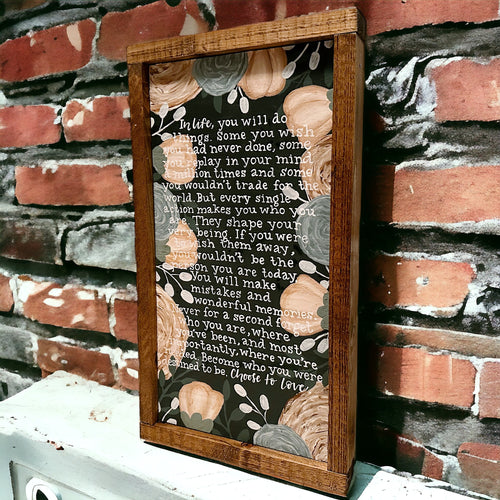 In life, you will do
things. Some you wish
you had never done, some
you replay in your mind
a million times and some
you wouldn't trade for the
world. But every single
action makes you who you
are. They shape your
very being. If you were
to wish them away,
you wouldn't be the
person you are today.
You will make
mistakes and
wonderful memories.
Never for a second forget
who you are, where
you've been, and most
importantly, where you're
headed. Become who you were
destined to be. Choose to Love